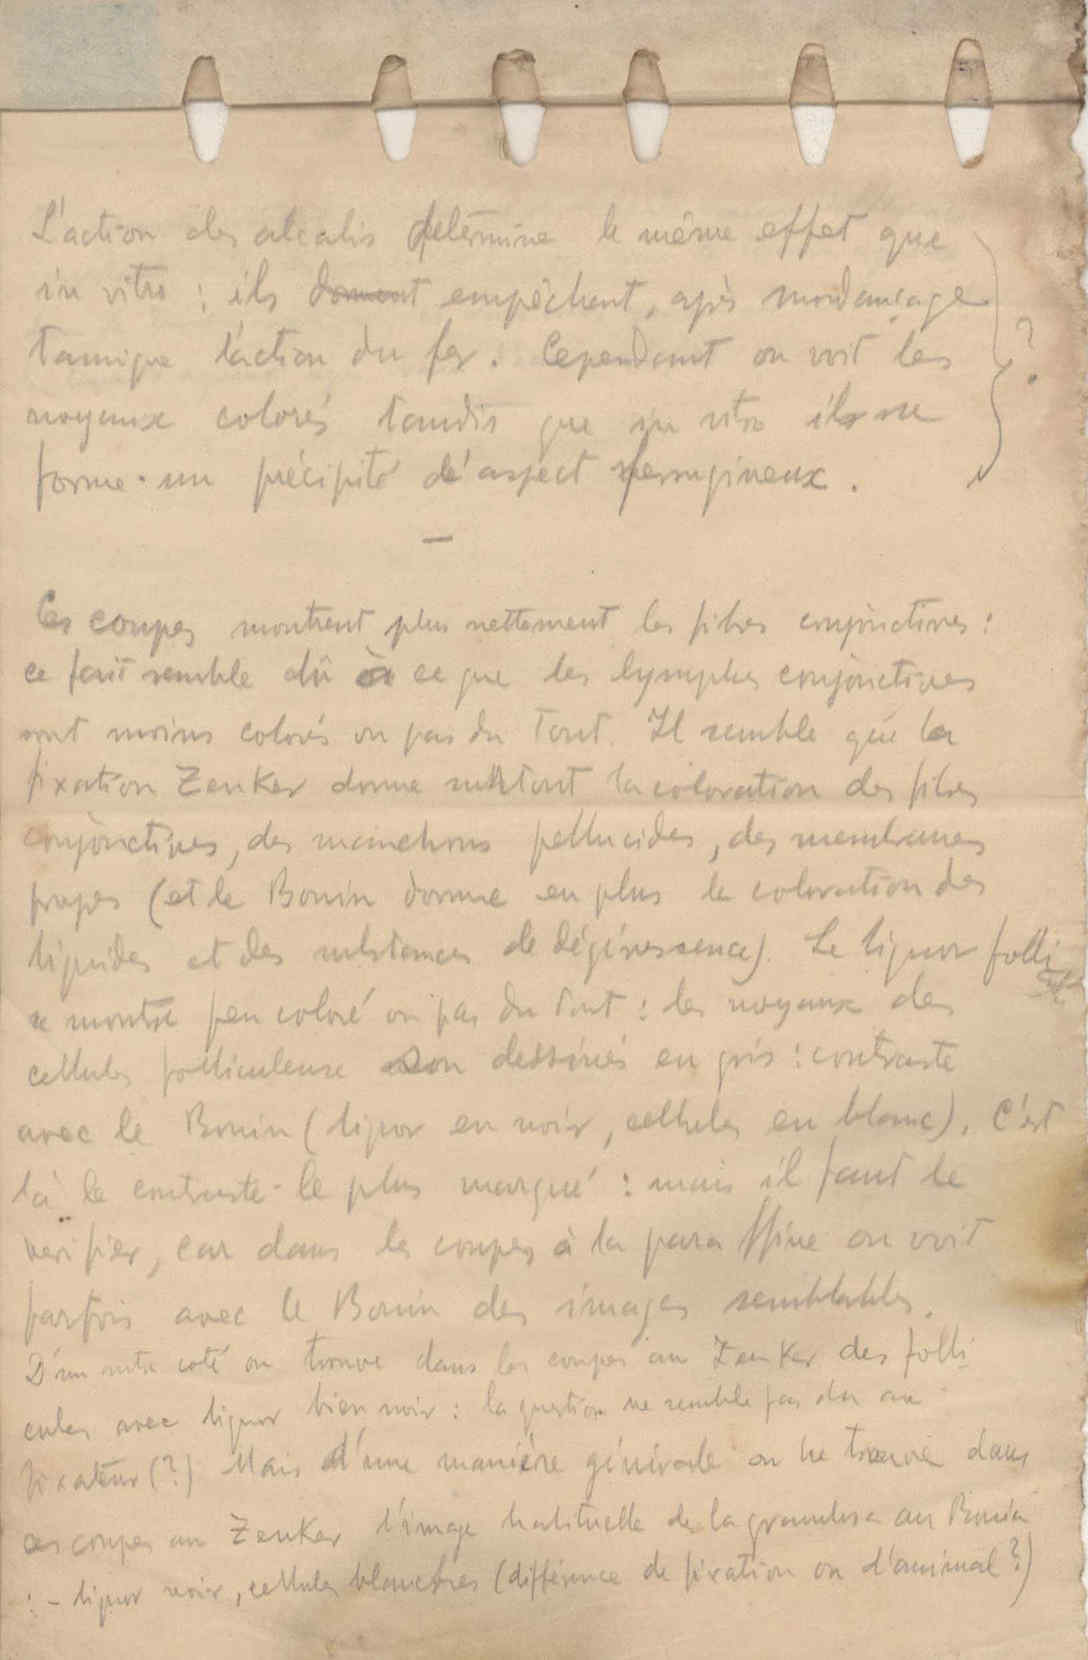 L'action des alcalis détermine le même effet que
in vitro : ils donnent empêchent, après mordançage
tannique l'action du fer. Cependant on voit les
noyaux colorés tandis que in vitro il se
forme un précipité d'aspect ferrugineux.
?
—
Ces coupes montrent plus nettement les fibres conjonctives :
ce fait semble dû à ce que les lymphes conjonctives
sont moins colorés ou pas du tout. Il semble que la
fixation Zenker donne surtout la coloration des fibres
conjonctives, des manchons pellucides, des membranes
propres (et le Bouin donne en plus la coloration des
liquides et des substances de dégénescence). Le liquor folli
se montre peu coloré ou pas du tout : les noyaux des
cellules folliculeuse son dessinés en gris : contraste
avec le Bouin (liquor en noir, cellules en blanc). C'est
là le contraste le plus marqué : mais il faut le
verifier, car dans les coupes à la paraffine on voit
parfois avec le Bouin des images semblables.
D'un autre coté on trouve dans les coupes au Zenker des folli
cules avec liquor bien noir : la question ne semble pas due au
fixateur (?) Mais d'une manière générale on ne trouve dans
ces coupes au Zenker l'image habituelle de la granulosa au Bouin
: – liquor noir, cellules blanches (différence de fixation ou d'animal ?)